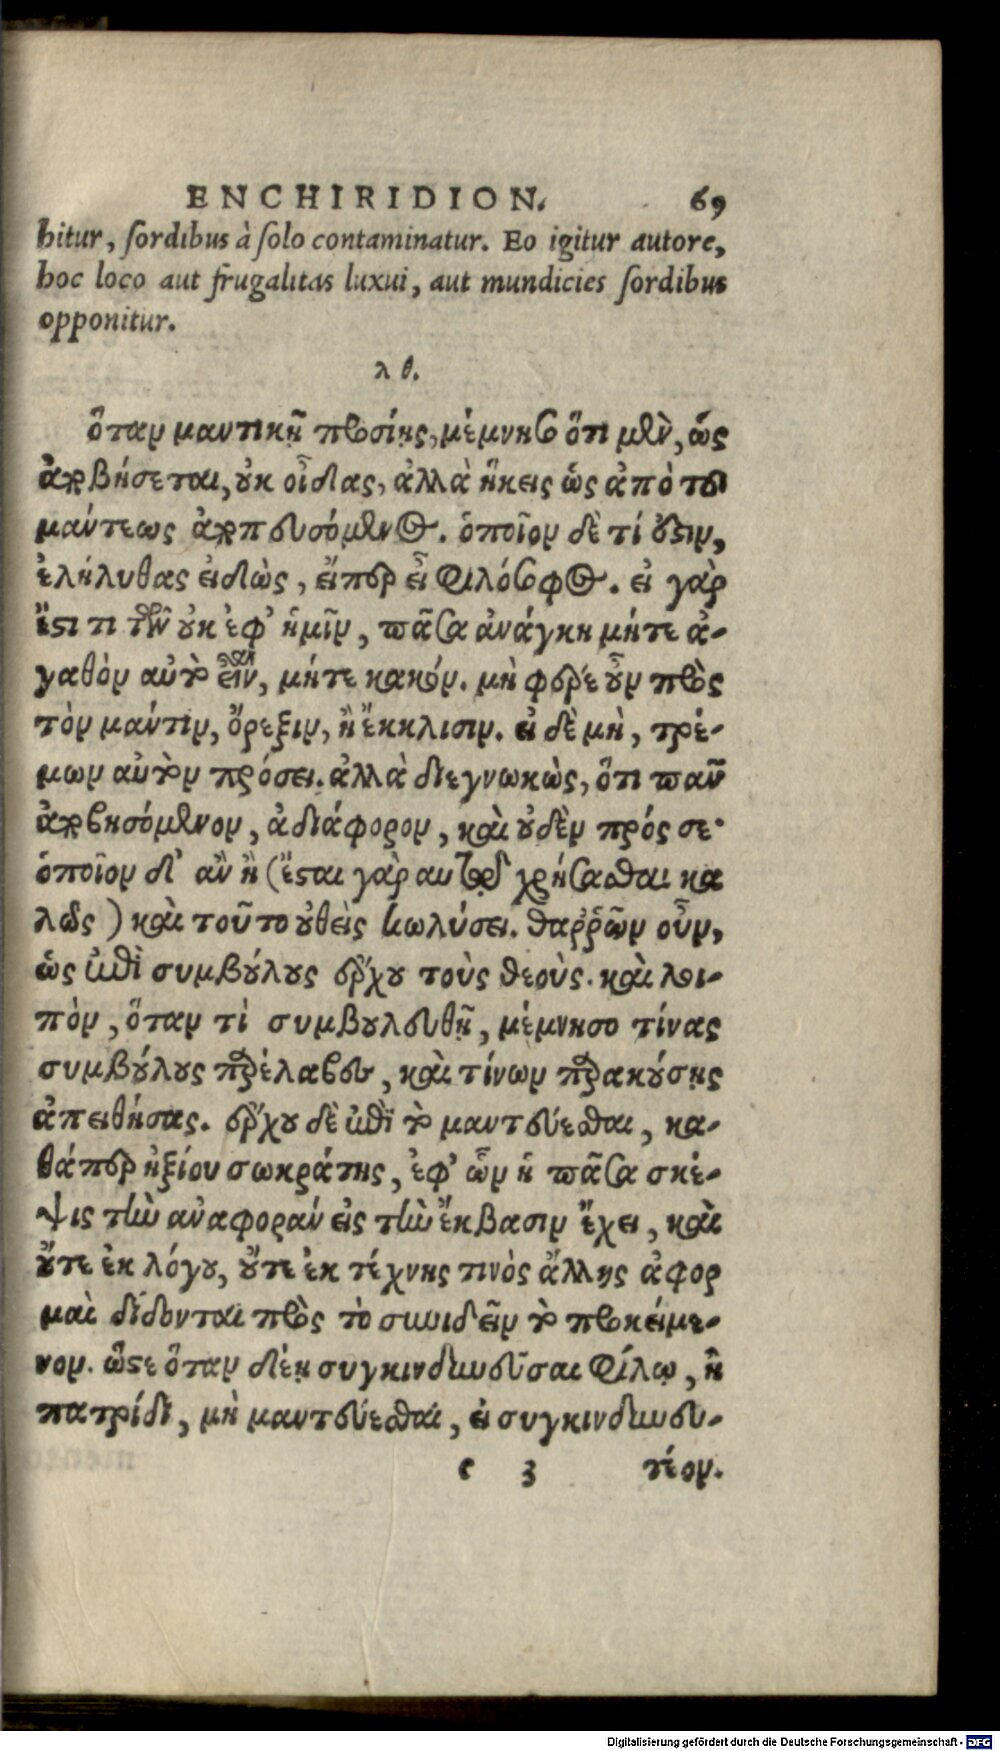 ENCHIRIDION. 69
bitur, sordibus à solo contaminatur. Eo igitur autore,
hoc loco aut frugalitas luxui, aut mundicies sordibus
opponitur.
λθ.
ὅταν μαντικῇ προσίῃς, μέμνησο ὅτι μὲν, ὡς
ἀποβήσεται, οὐκ οἶδας, ἀλλὰ ἥκεις ὡς ἀπὸ τοῦ
μάντεως ἀποπευσόμενος. ὁποῖον δὲ τί ὅστιν,
ἐλήλυθας εἰδὼς, εἴπερ εἶ φιλόσοφος. εἰ γὰρ
ἔστι τι τῶν οὐκ ἐφ’ ἡμῖν, πᾶσα ἀνάγκη μήτε ἀ-
γαθὸν αὐτὸ εἶναι, μήτε κακόν. μὴ φέρε οὖν πρὸς
τὸν μάντιν, ὄρεξιν, ἢ ἔκκλισιν. εἰ δὲ μὴ, τρέ-
μων αὐτὸν πρόσει. ἀλλὰ διεγνωκὼς, ὅτι πᾶν
ἀποβησόμενον, ἀδιάφορον, καὶ οὐδὲν πρός σε·
ὁποῖον δ’ ἂν ἦ (ἔσται γὰρ αυτῷ χρήσασθαι κα
λῶς) καὶ τοῦτο οὐθεὶς κωλύσει. θαῤῥῶν οὖν,
ὡς ἐπὶ συμβούλους ἔρχου τοὺς θεούς. καὶ λοι-
πὸν, ὅταν τὶ συμβουλευθῇ, μέμνησο τίνας
συμβούλους παρέλαβες, καὶ τίνων παρακούσῃς
ἀπειθήσας. ἔρχου δὲ ἐπὶ τὸ μαντεύεσθαι, κα-
θάπερ ἠξίου σωκράτης, ἐφ’ ὧν ἡ πᾶσα σκέ-
ψις τὴν αναφοράν εἰς τὴν ἔκβασιν ἔχει, καὶ
οὔτε ἐκ λόγου, οὔτε ἐκ τέχνης τινὸς ἄλλης ἀφορ
μαὶ δίδονται πρὸς τὸ συνιδεῖν τὸ προκείμε-
νον. ὥστε ὅταν δέῃ συγκινδυνεῦσαι φίλῳ, ἢ
πατρίδι, μὴ μαντεύεσθαι, εἰ συγκινδυνευ-
e 3 τέον.
Digitalisierung gefördert durch die Deutsche Forschungsgemeinschaft - DFG